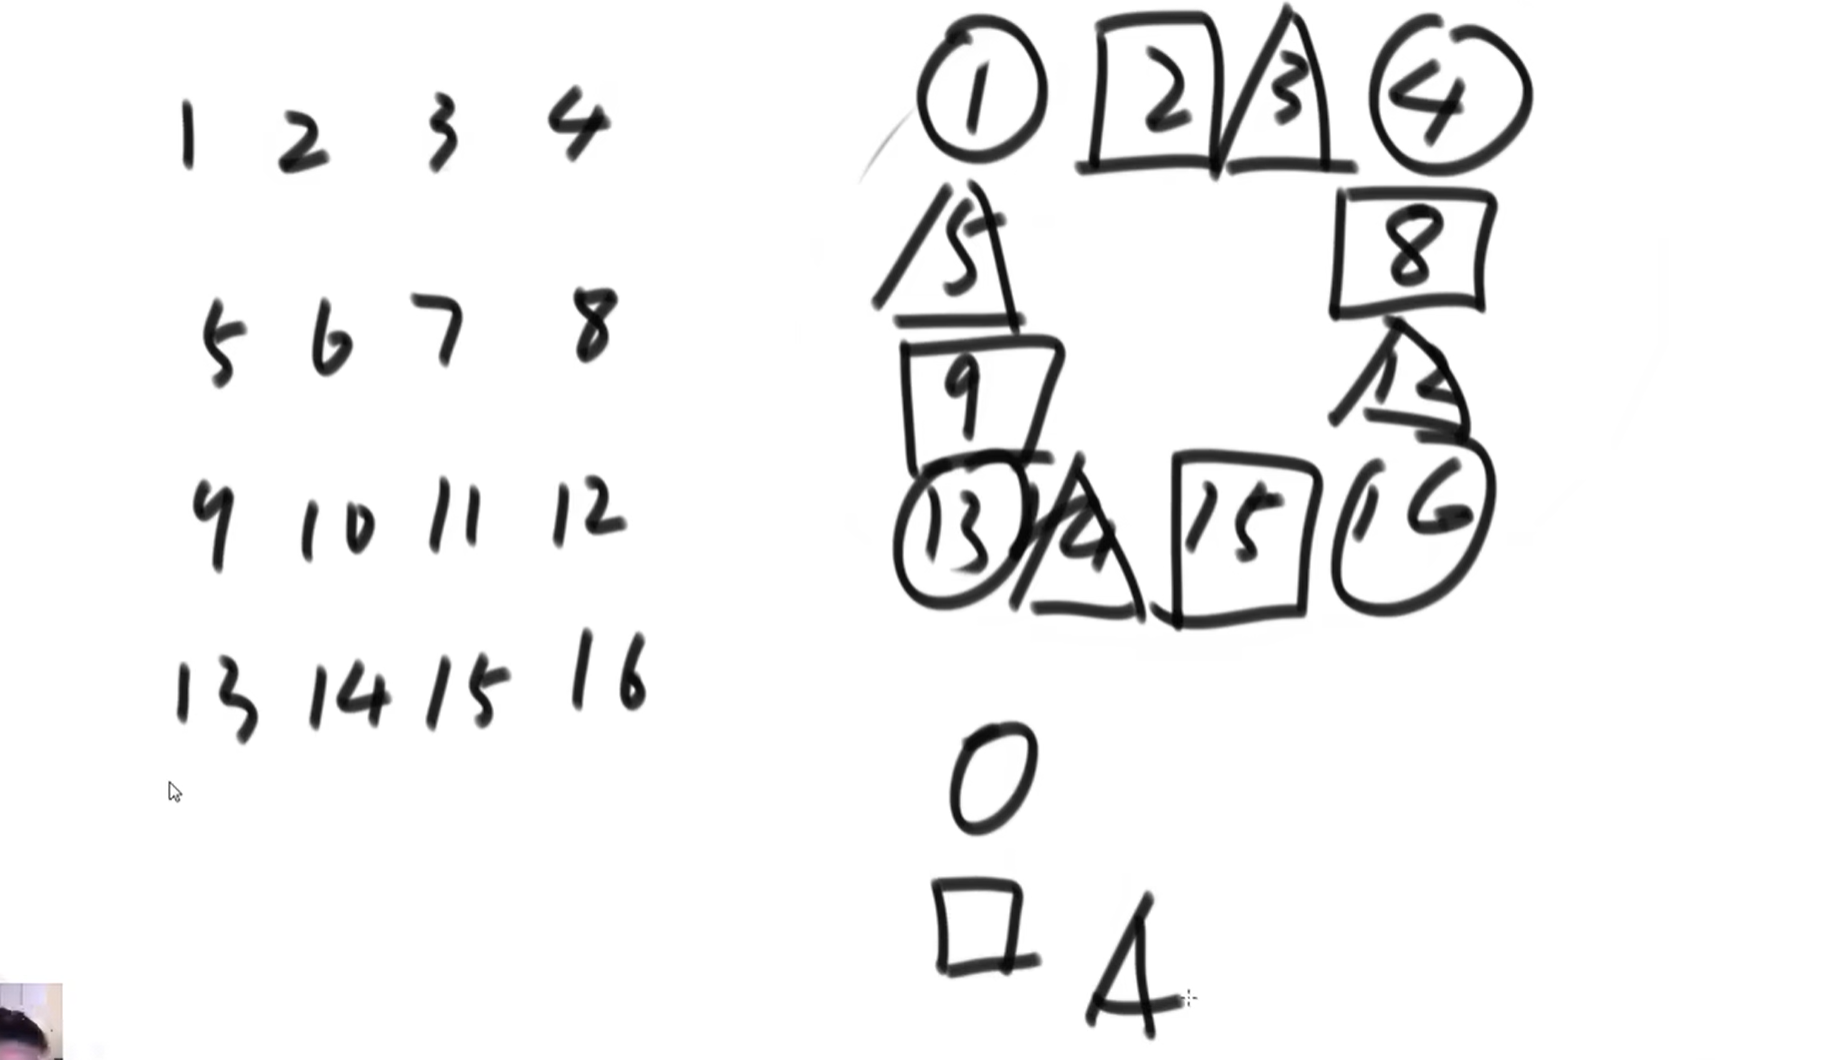 1 2 3 4
5 6 7 8
9 10 11 12
13 14 15 16
1 2 3 4
5 8
9 12
13 14 15 16